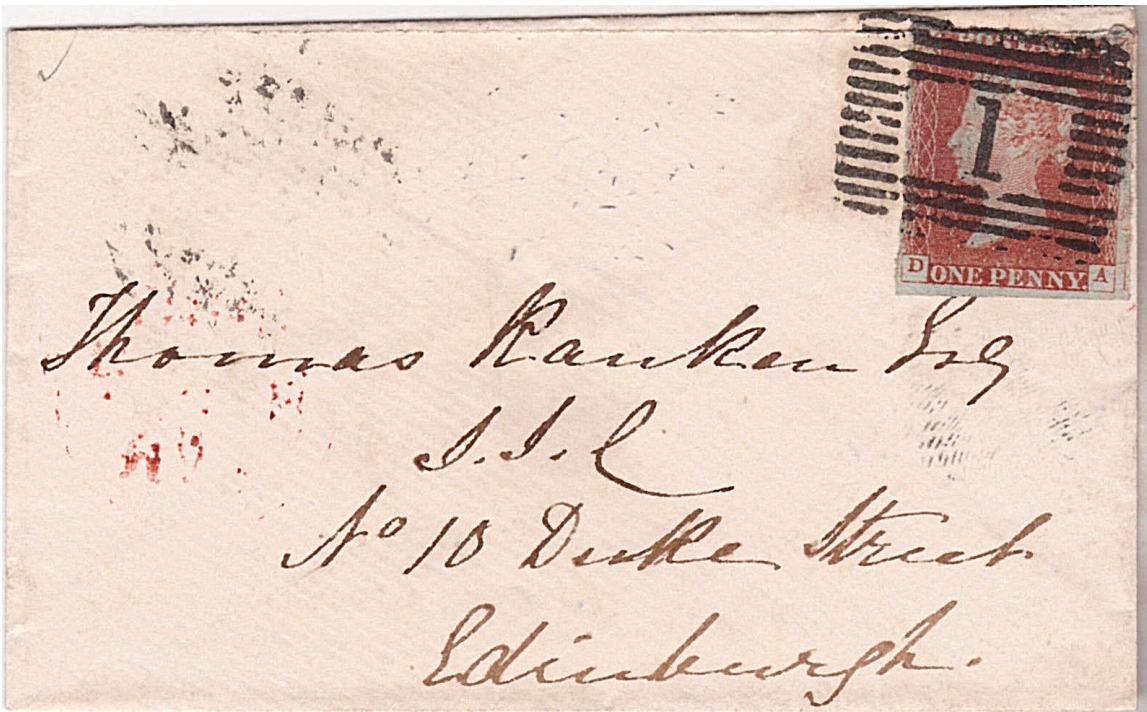 POSTAGE
1
D ONE PENNY. A
Thomas Ranken Esq
S.S.C
No 10 Duke Street
Edinburgh.